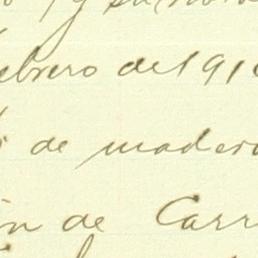 y su
ebrero de 191
de madera
ón de Carr